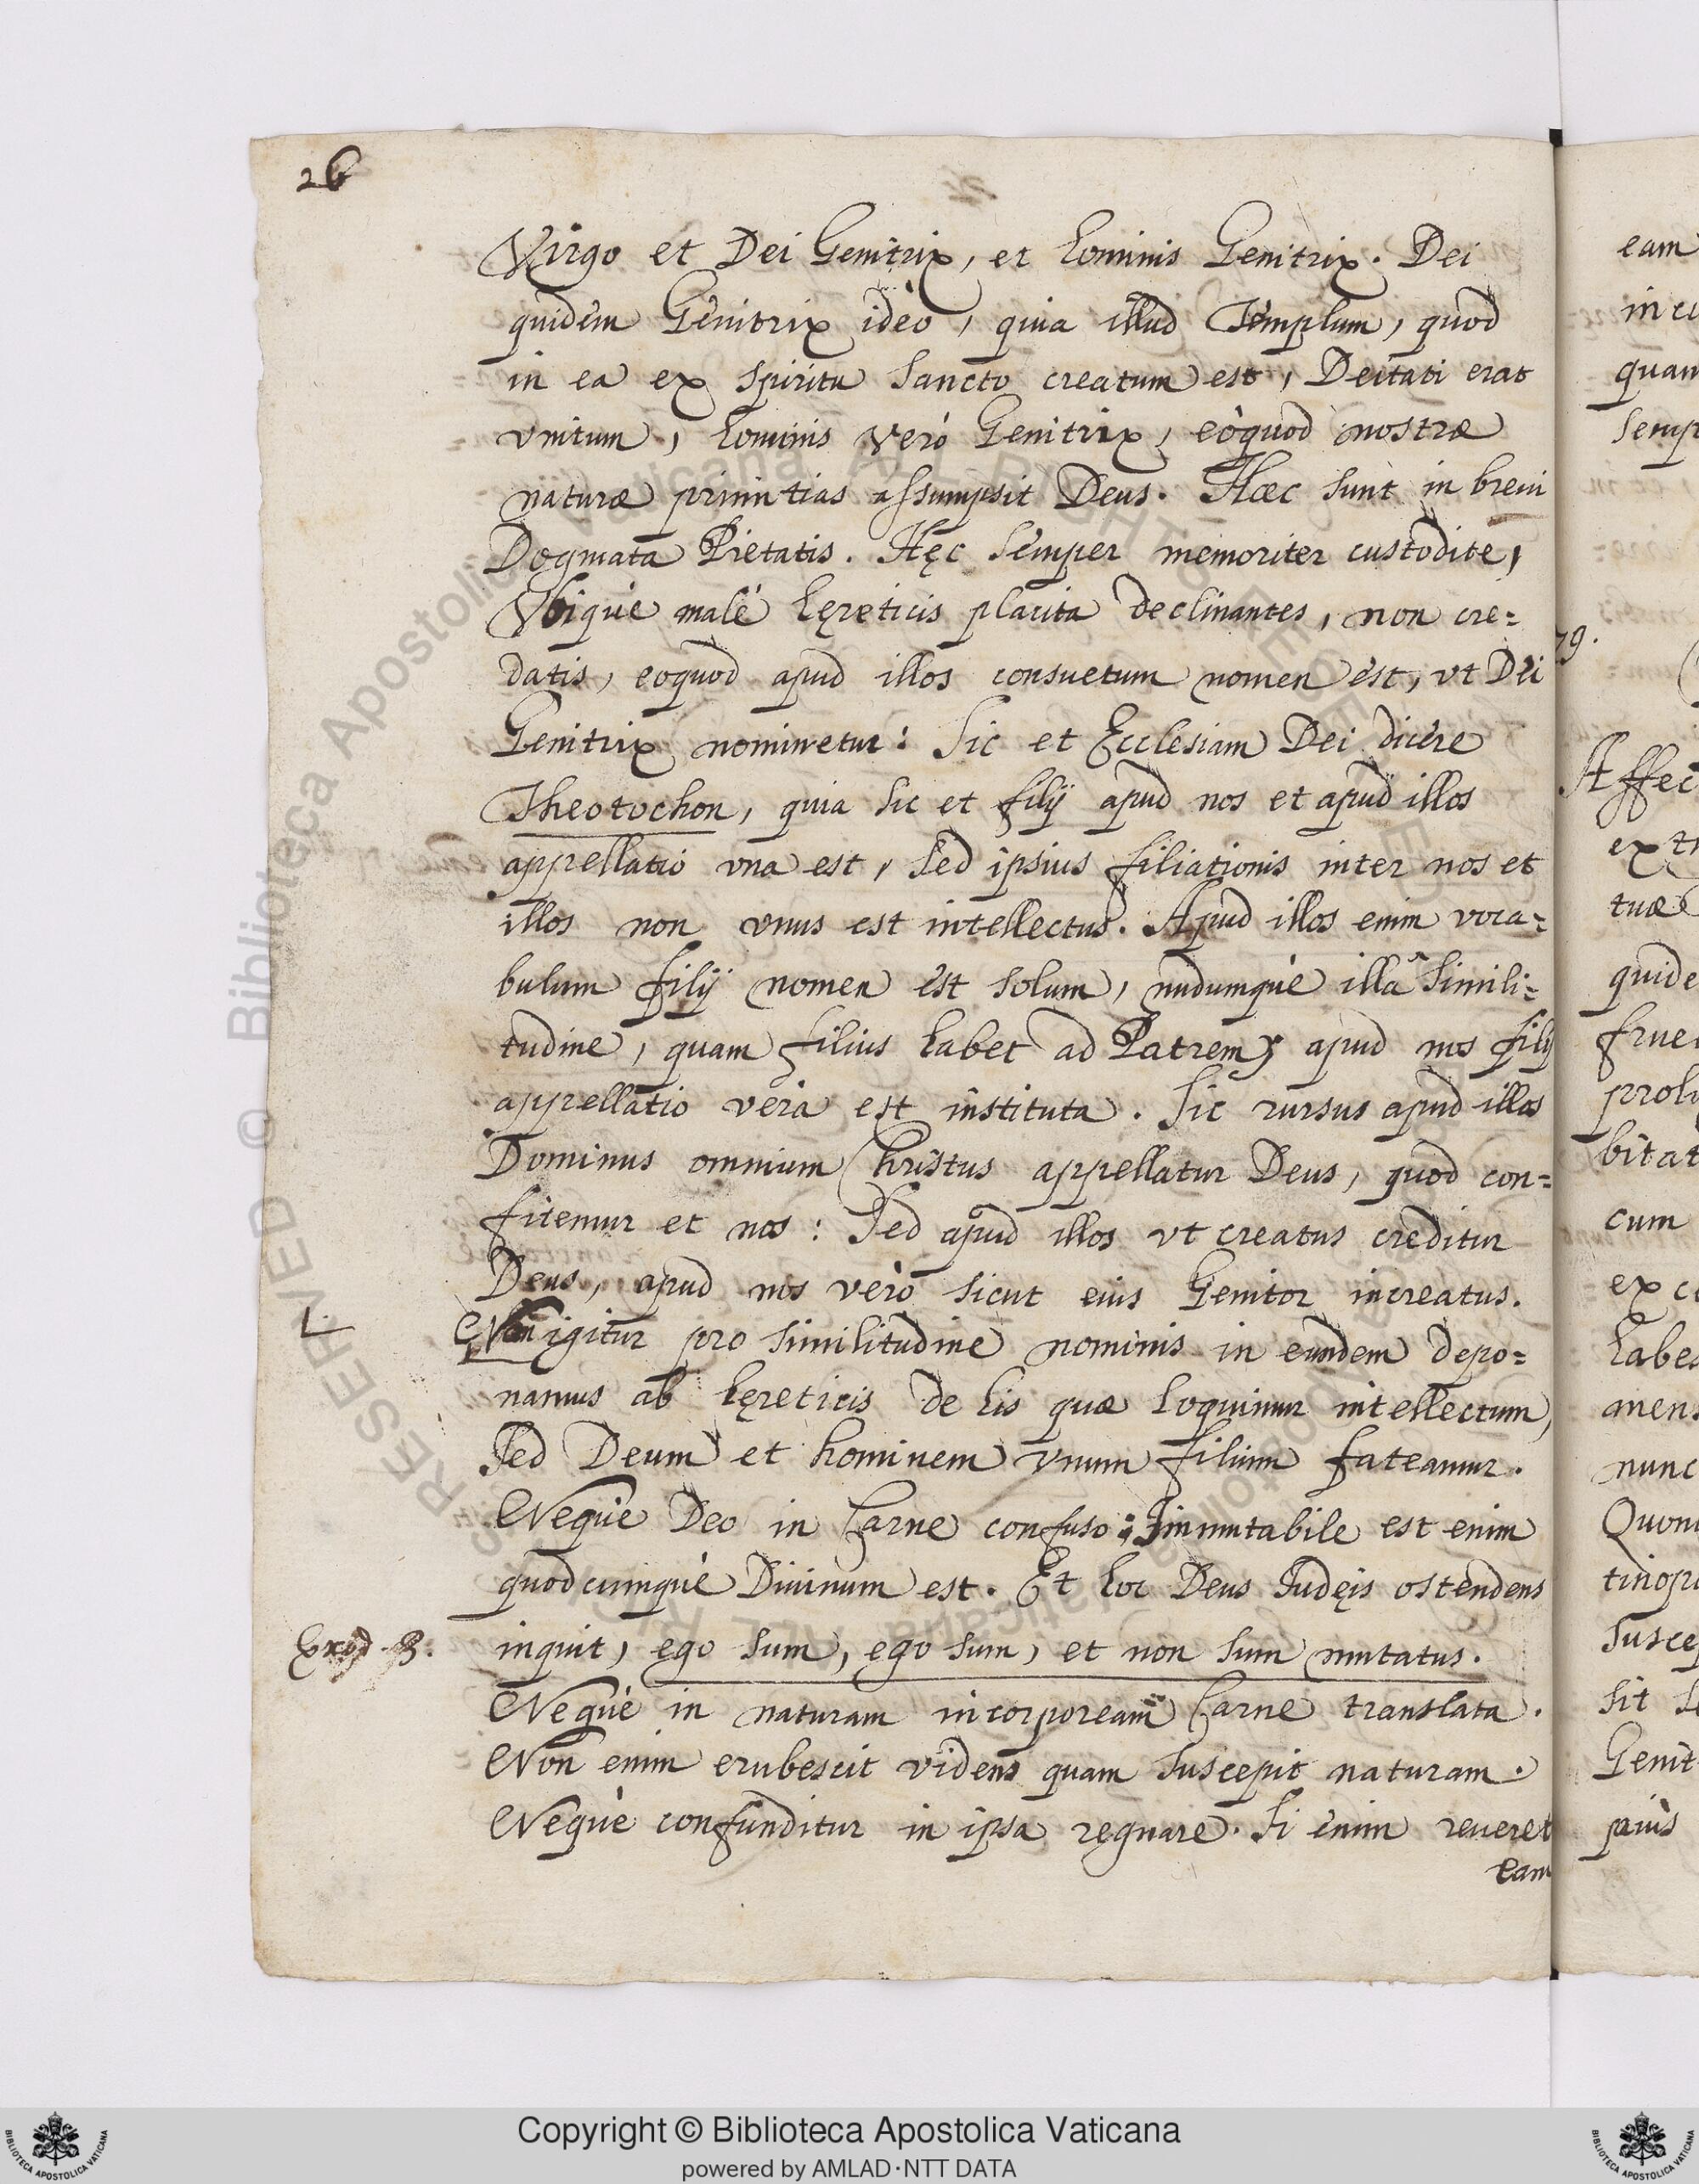 26
Virgo et Dei Genitrix, et hominis Genitrix. Dei
quidem Genitrix ideò, quia illud Templum, quod
in ea ex spiritu sancto creatum est, Deitati erat
vnitum, hominis verò Genitrix, eòquod nostræ
naturæ primitias assumpsit Deus. Hæc sunt in breui
Dogmata Pietatis. Hęc semper memoriter custodite,
Vbique malè hęreticis placita declinantes, non cre=
datis, eoquod apud illos consuetum nomen est, vt Dei
Genitrix nominetur: Sic et Ecclesiam Dei dicere
Theotochon, quia sic et filij apud nos et apud illos
appellatio vna est, sed ipsius filiationis inter nos et
illos non vnus est intellectus. Apud illos enim voca=
bulum filij nomen est solum, nudumquè illa simili=
tudine, quam filius habet ad Patrem; apud nos filij
appellatio vera est instituta. Sic rursus apud illos
Dominus omnium Christus appellatur Deus, quod con=
fitemur et nos: Sed apud illos vt creatus creditur
Deus, apud nos verò sicut eius Genitor increatus.
Non igitur pro similitudine nominis in eundem depo=
namus ab hęreticis de his quæ loquimur intellectum,
Sed Deum et hominem vnum filium fateamur.
Neque Deo in Carne confuso: Immutabile est enim
quodcumquè Diuinum est. Et hoc Deus Iudęis ostendens
Exod. 3.
inquit, ego sum, ego sum, et non sum mutatus.
Nequè in naturam incorpoream Carne translata.
Non enim erubescit videns quam suscepit naturam.
Nequè confunditur in ipsa regnare. Si enim reueret
eam
79.
eam
in cu
quam
semp
Affec
ex tr
tuæ
quide
frue
prolu
bitat
cum
ex c
habes
mens
nunc
Quoni
tinopo
Suscep
sit
Genit
paius
© Biblioteca Apostolica Vaticana ALL RIGHTS RESERVED
Copyright © Biblioteca Apostolica Vaticana
powered by AMLAD·NTT DATA
BIBLIOTECA APOSTOLICA VATICANA
BIBLIOTECA APOSTOLICA VATICANA